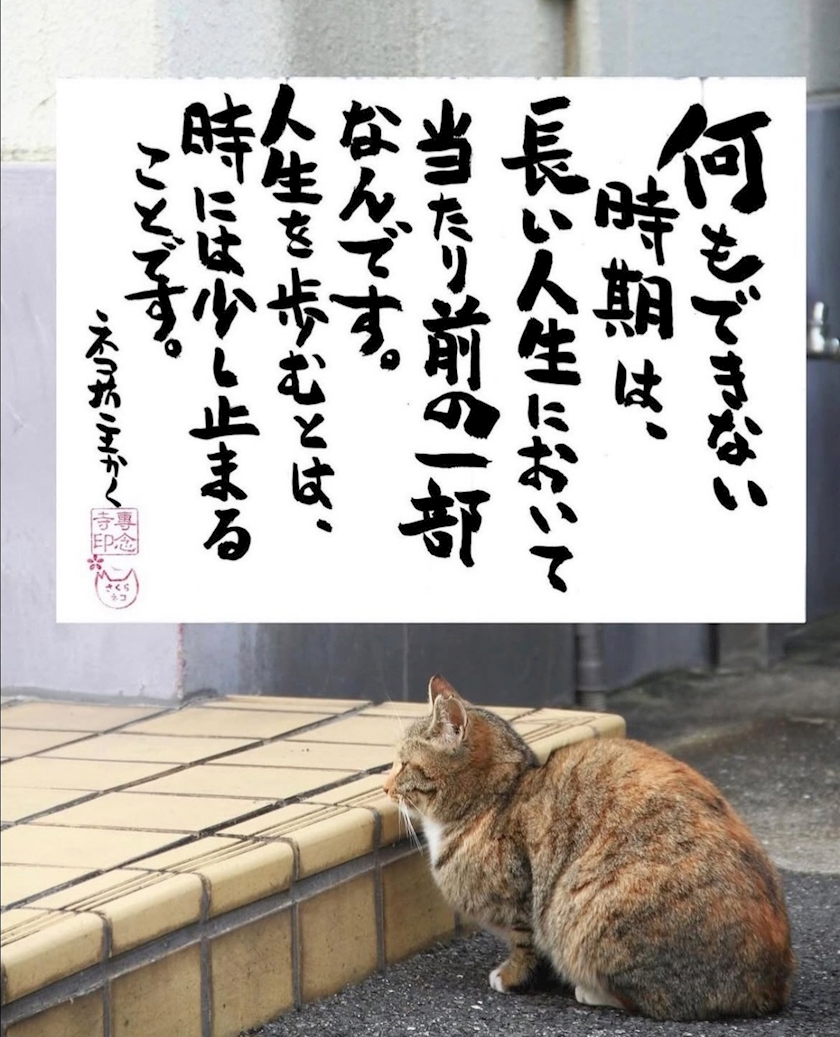 何もできない
時期は、
長い人生において
当たり前の一部
なんです。
人生を歩むとは、
時には少し止まる
ことです。
ネコ坊主かく
専念
寺印
さくら
ネコ